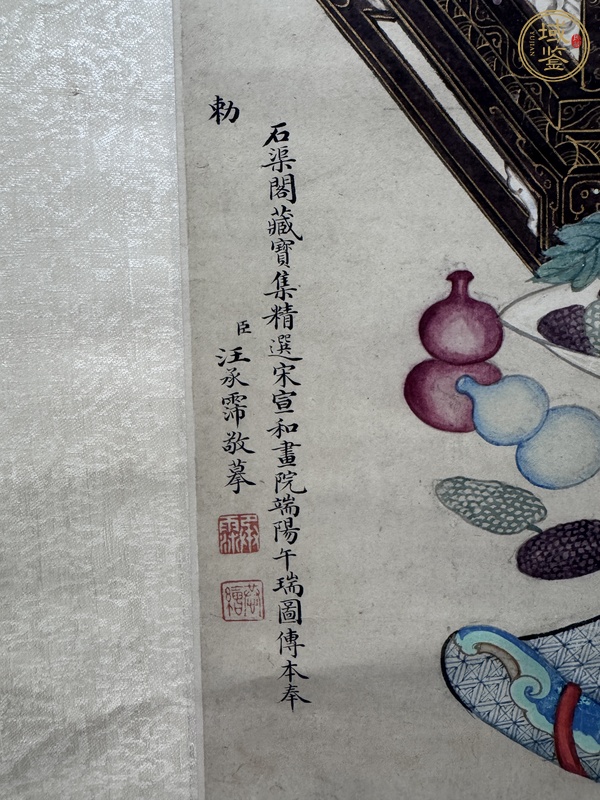 石渠閣藏寶集精選宋宣和畫院端陽午瑞圖傳本奉
勅
臣汪承霈敬摹
承霈
域鉴
YUJIAN